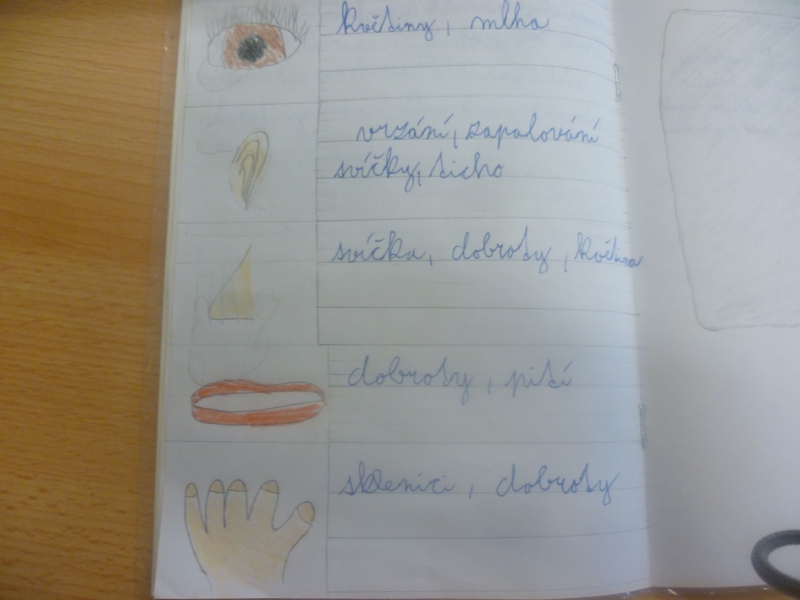 květiny, mlha
vrzání, zapalování
svíčky, ticho
svíčka, dobroty, květina
dobroty, pití
sklenici, dobroty